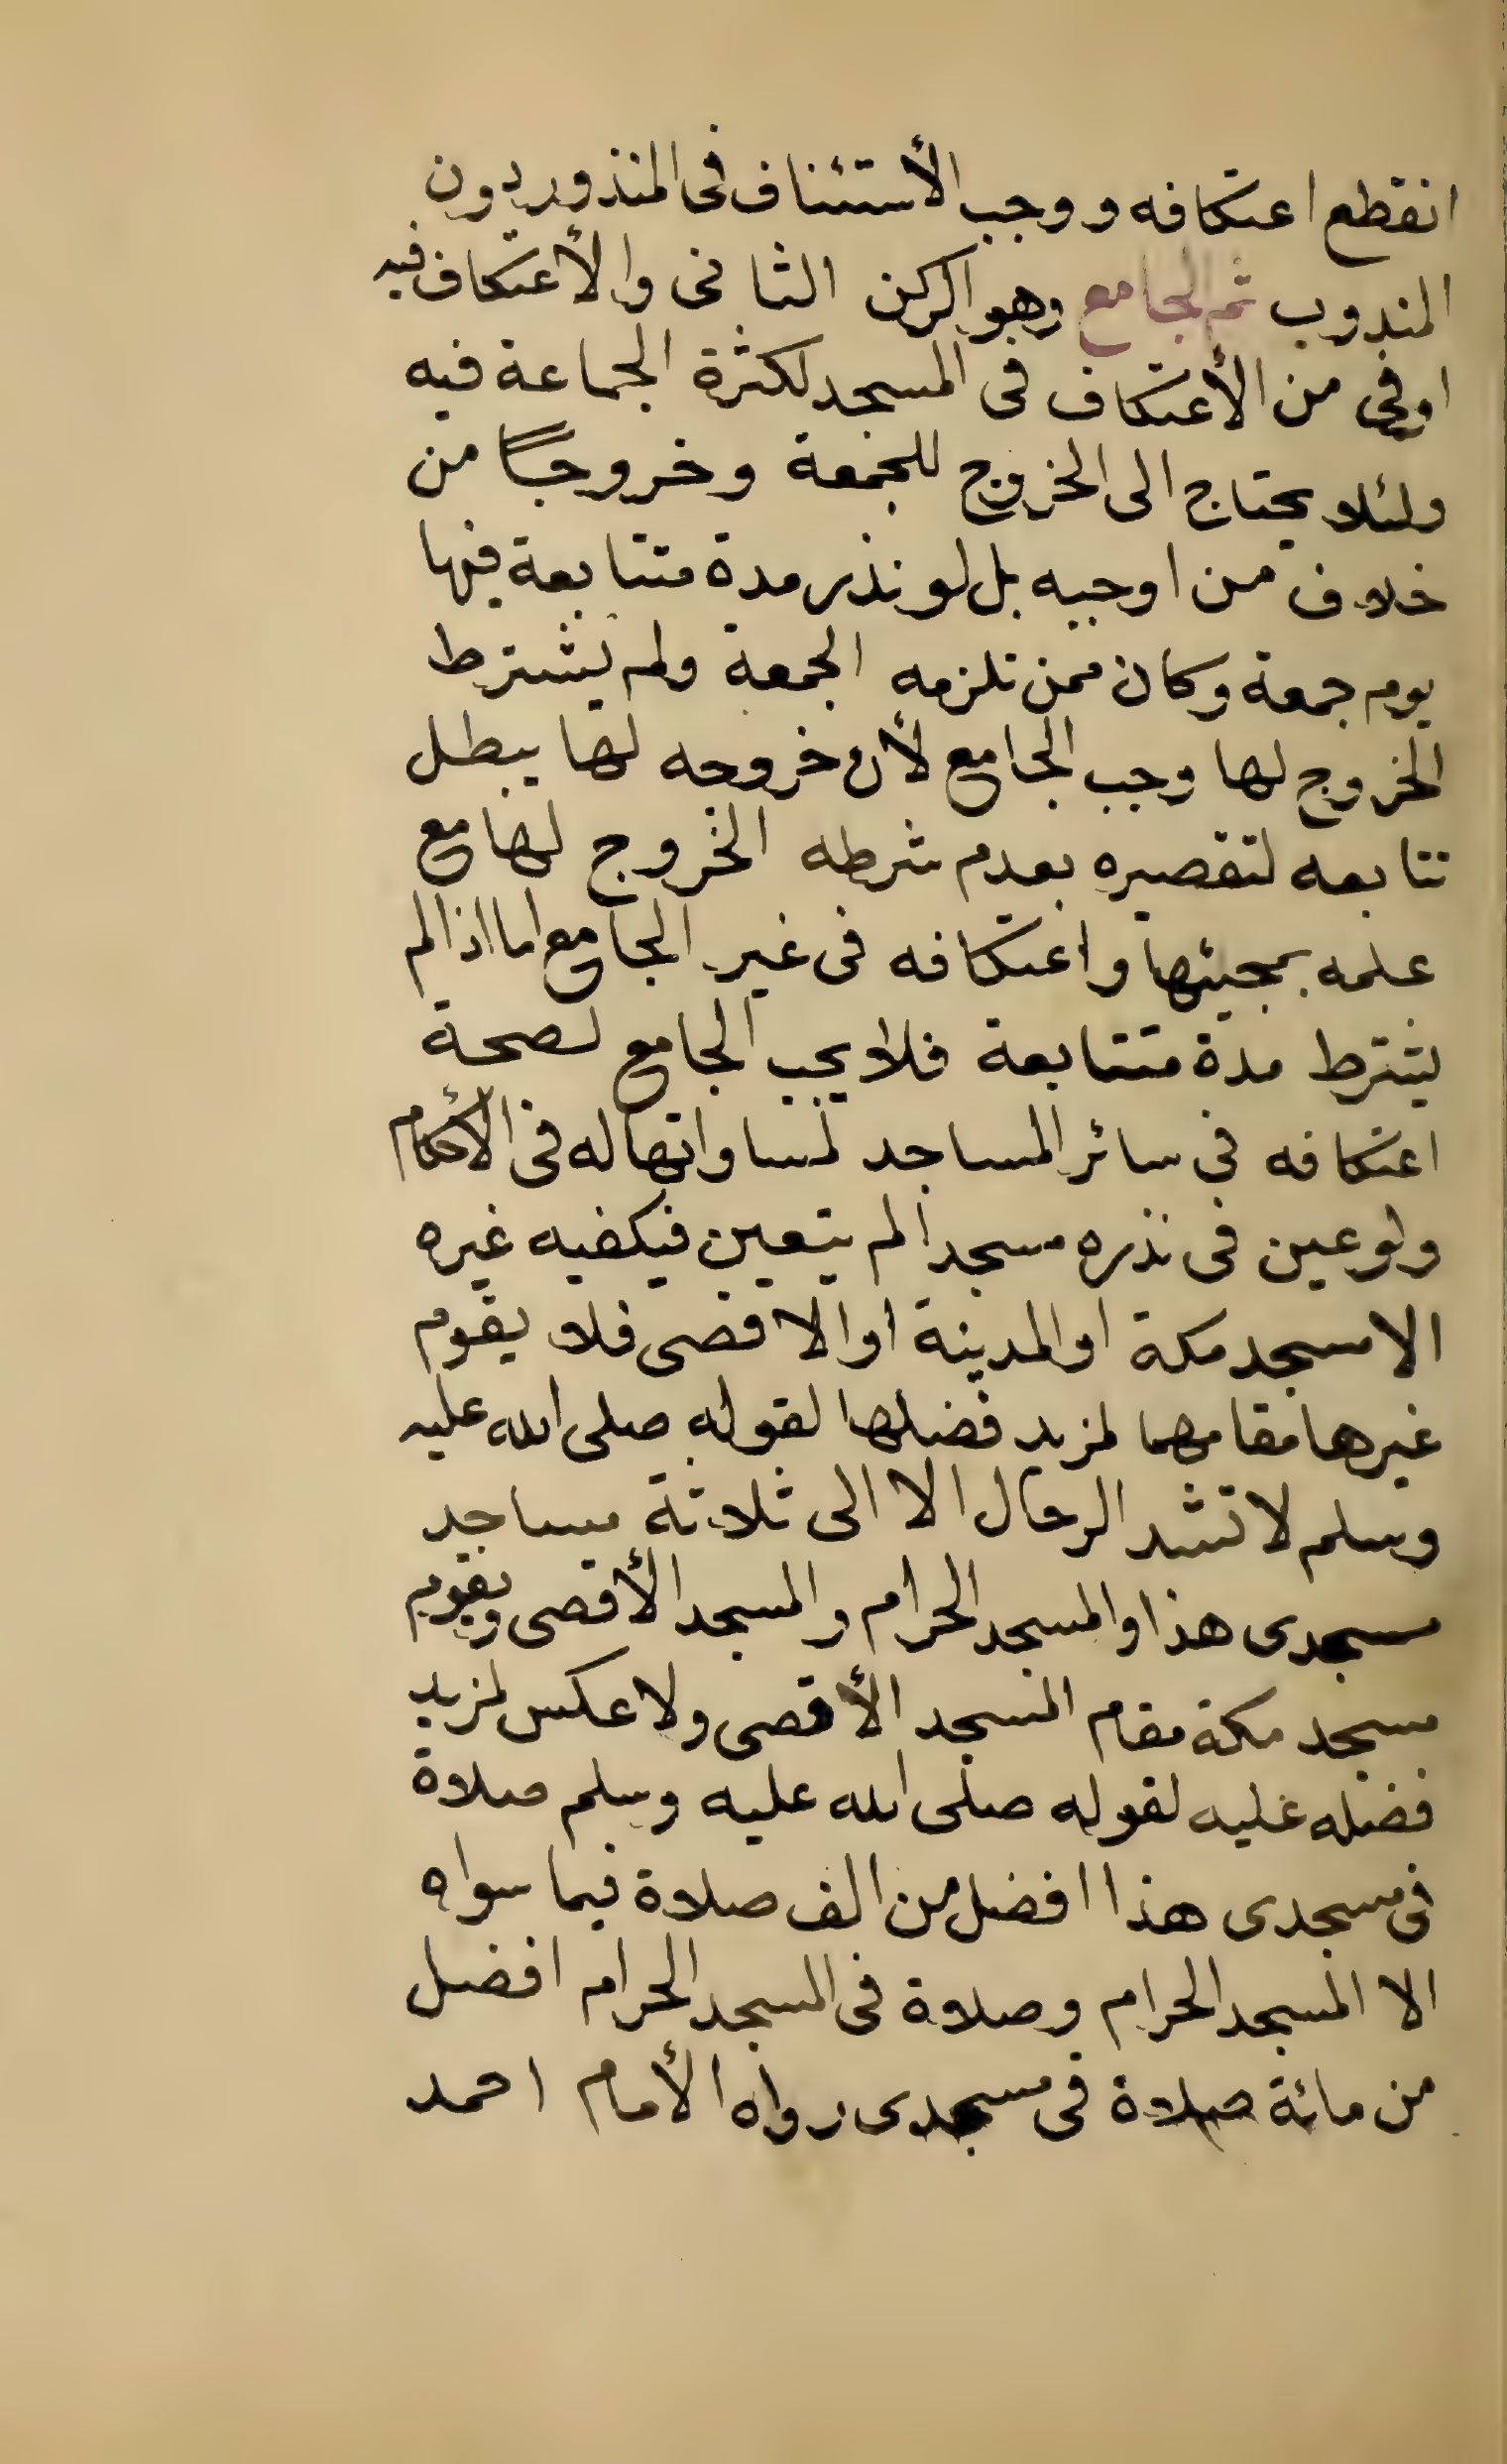 انقطع اعتكافه ووجب الأستئناف فى المنذور دون
المندوب ثم الجامع وهو الركن الثانى والأعتكاف فيه
اوفى من الأعتكاف فى المسجد لكثرة الجماعة فيه
ولئلا يحتاج الى الخروج للجمعة وخروجًا من
خلاف من اوجبه بل لو نذر مدة متتابعة فيها
يوم جمعة وكان ممن تلزمه الجمعة ولم يشترط
الخروج لها وجب الجامع لأن خروجه لها يبطل
تتابعه لتقصيره بعدم شرطه الخروج لها مع
علمه بمجيئها واعتكافه فى غير الجامع اما اذا لم
يشترط مدة متتابعة فلا يجب الجامع لصحة
اعتكافه فى سائر المساجد لمساواتها له فى الأحكام
ولو عين فى نذره مسجدا لم يتعين فيكفيه غيره
الا مسجد مكة او المدينة او الاقصى فلا يقوم
غيرها مقامهما لمزيد فضلها لقوله صلى الله عليه
وسلم لا تشد الرحال الا الى ثلاثة مساجد
مسجدى هذا والمسجد الحرام والمسجد الأقصى ويقوم
مسجد مكة مقام المسجد الأقصى ولا عكس لمزيد
فضله عليه لقوله صلى الله عليه وسلم صلاة
فى مسجدى هذا افضل من الف صلاة فيما سواه
الا المسجد الحرام وصلاة فى المسجد الحرام افضل
من مائة صلاة فى مسجدى رواه الأمام احمد